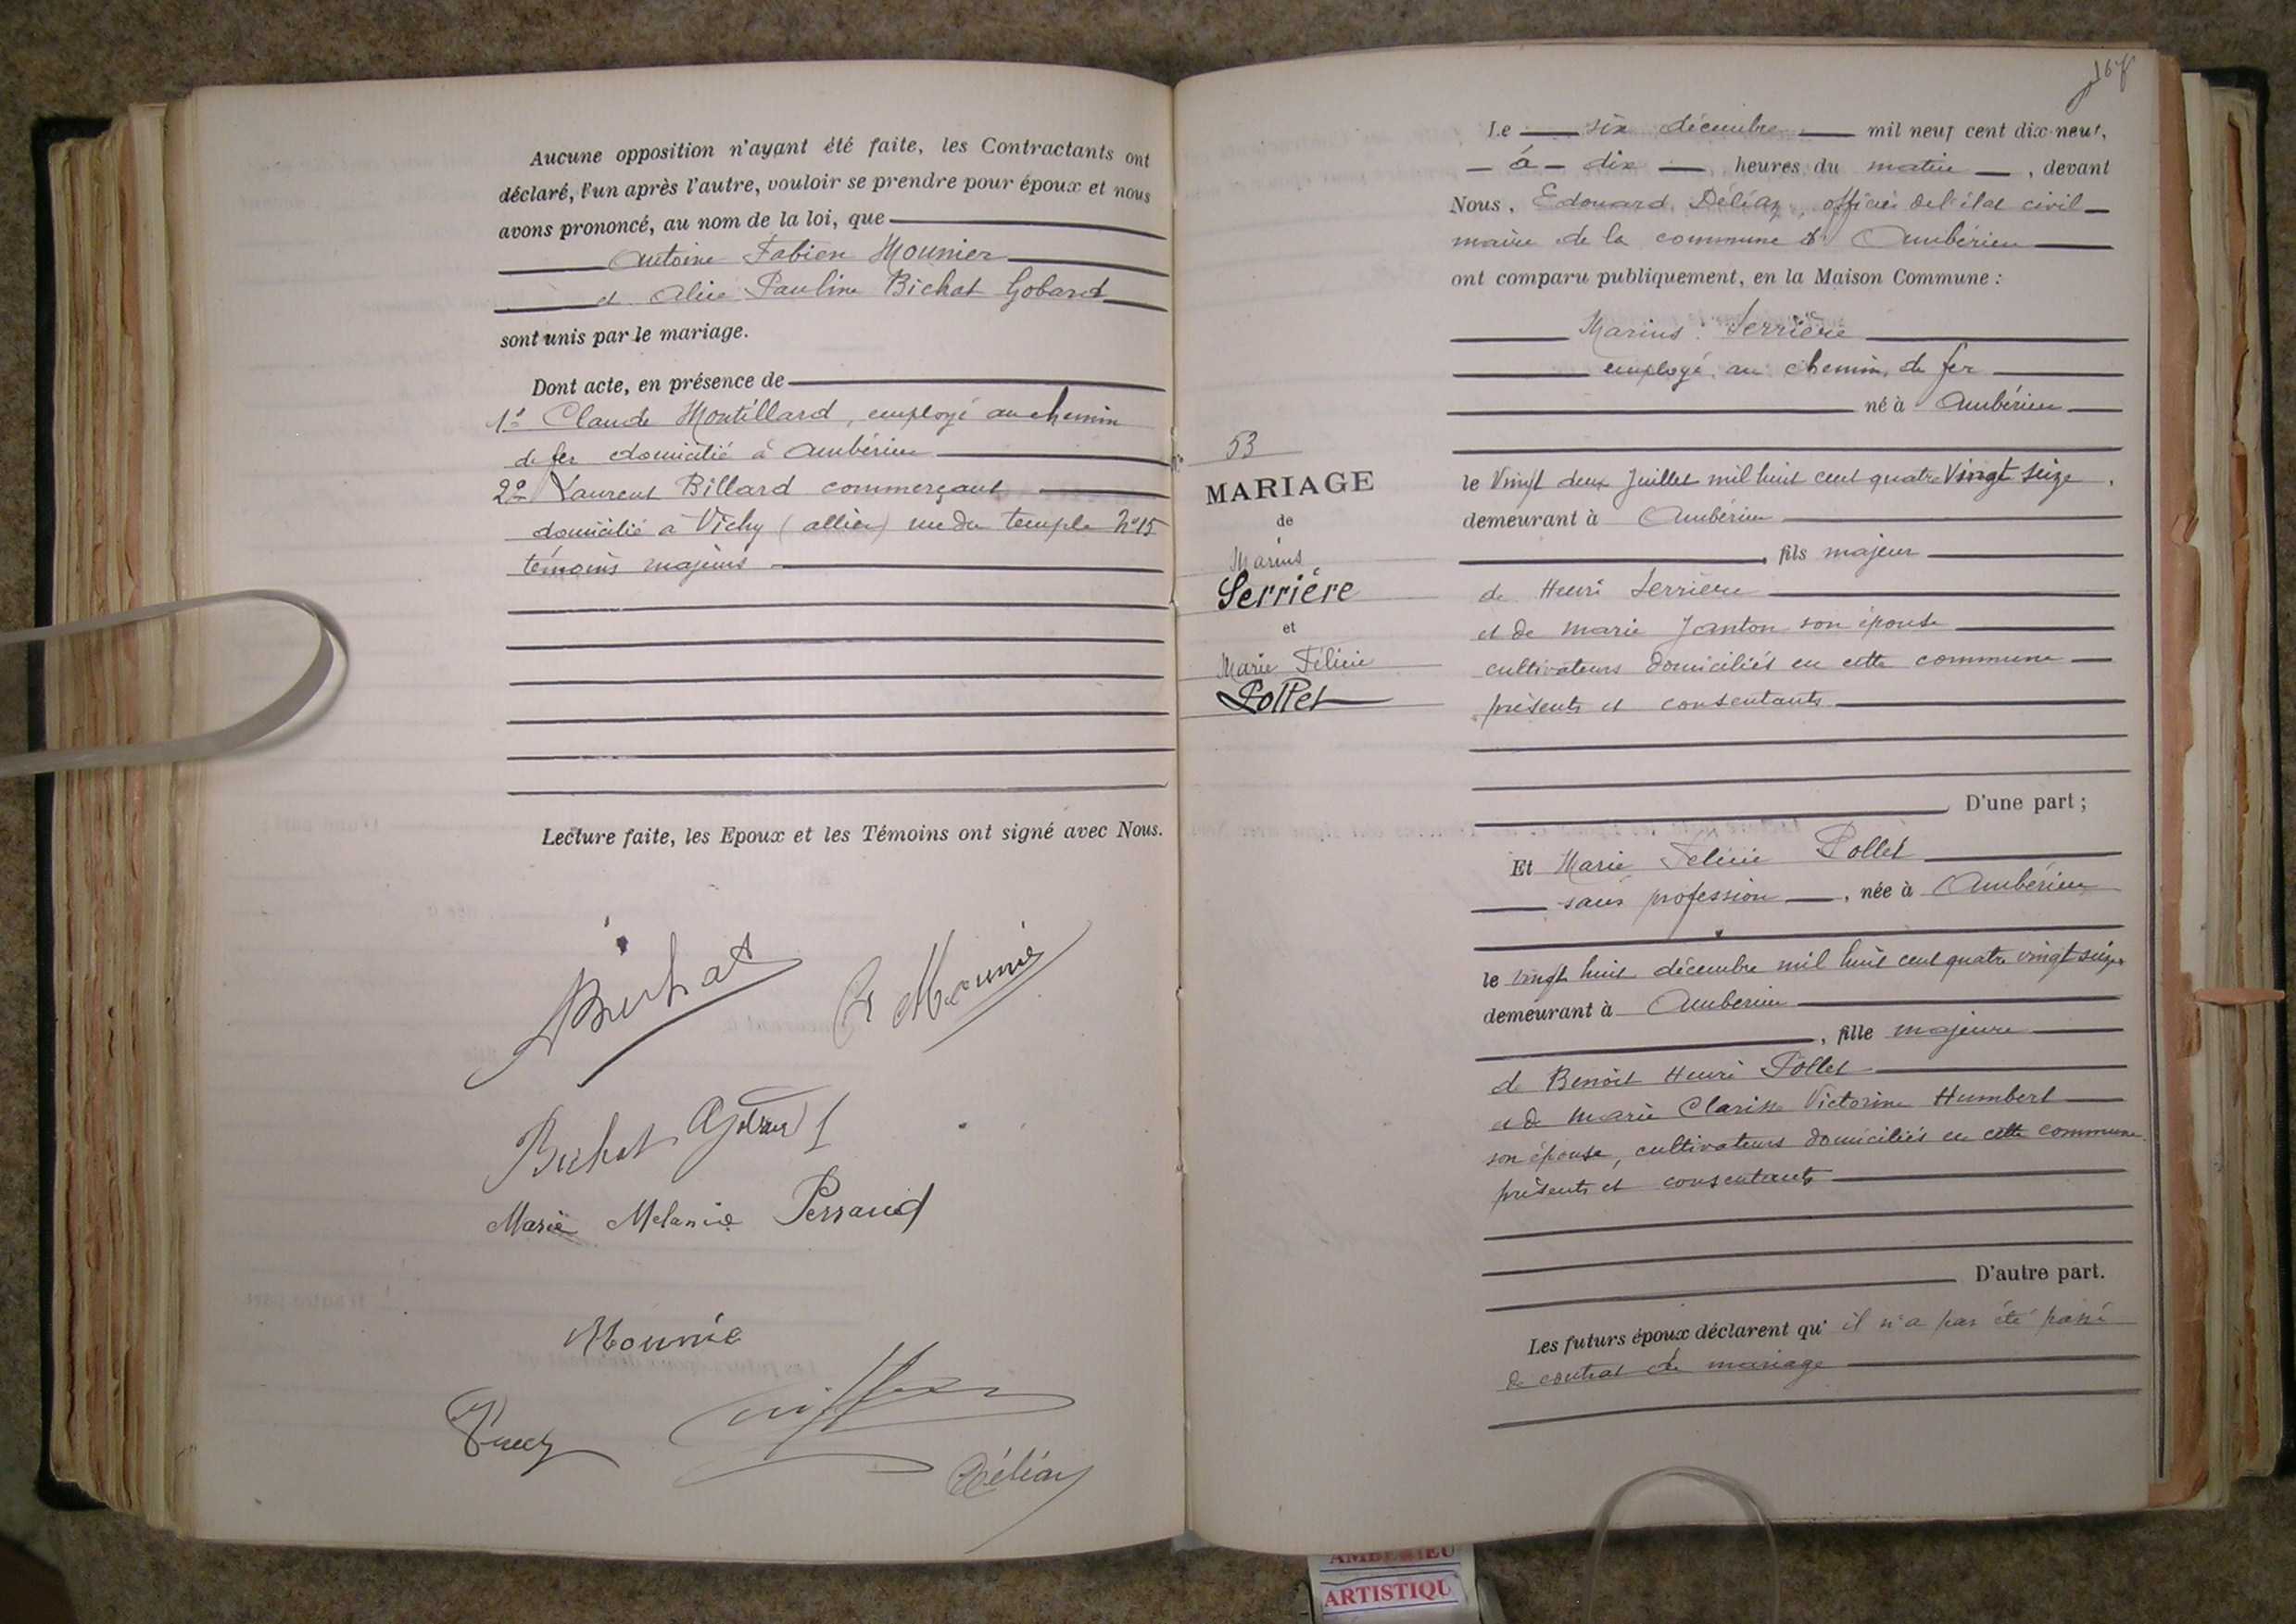 Aucune opposition n'ayant été faite, les Contractants ont
déclaré, l'un après l'autre, vouloir se prendre pour époux et nous
avons prononcé, au nom de la loi, que
Antoine Fabien Mounier
et Alice Pauline Bichat Gobard
sont unis par le mariage.
Dont acte, en présence de
1° Claude Montillard, employé au chemin
de fer domicilié à Ambérieu
2° Laurent Billard commerçant
domicilié à Vichy (allier) rue du temple N°15
témoins majeurs
Lecture faite, les Epoux et les Témoins ont signé avec Nous.
Bichat
Mounié
Bichat
Marie Melanie Perraud
Mounié
Déliaz
Le six décembre mil neuf cent dix-neuf,
à dix heures du matin, devant
Nous, Edouard Déliaz, officier de l'état civil
maire de la commune d' Ambérieu
ont comparu publiquement, en la Maison Commune :
Marius Serrière
employé au chemin de fer
né à Ambérieu
N° 53
MARIAGE
de
Marius
Serrière
et
Marie Félicie
Pollet
le Vingt deux Juillet mil huit cent quatre Vingt Seize,
demeurant à Ambérieu
, fils majeur
de Henri Serrière
et de marie Janton son épouse
cultivateurs domiciliés en cette commune
présents et consentants
D'une part ;
Et Marie Félicie Pollet
sans profession, née à Ambérieu
le vingt huit décembre mil huit cent quatre vingt seize
demeurant à Ambérieu
, fille majeure
de Benoit Henri Pollet
et de Marie Clarisse Victorine Humbert
son épouse, cultivateurs domiciliés en cette commune
présents et consentants
D'autre part.
Les futurs époux déclarent qu' il n'a pas été passé
de contrat de mariage
ARTISTIQU